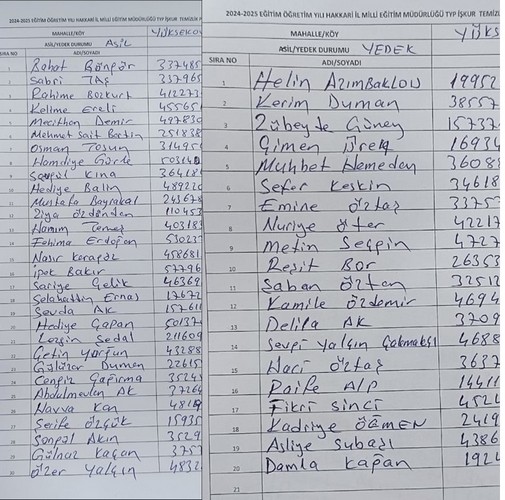 2024-2025 EĞİTİM ÖĞRETİM YILI HAKKARİ İL MİLLİ EĞİTİM MÜDÜRLÜĞÜ TYP İŞKUR TEMİZLİ
MAHALLE/KÖY YÜKSEKOV
ASİL/YEDEK DURUMU ASİL
SIRA NO ADI/SOYADI
1 337485
2 Sabri TAŞ 337965
3 Rahime Bozkurt 412273
4 455651
5 Demir 497830
6 Mehmet Sait 251838
7 Osman TOSUN 314951
8 Hamdiye
9 KINA 364181
10 Hediye Balin 489220
11 Mustafa Bayrakal 243678
12 Ziya Özdenden 110453
13 403183
14 Fehima Erdoğan 530233
15 Nasır 458681
16 İpek Bakır 57796
17 Sariye Çelik 46369
18 Selahattin 17672
19 Sevda AK 157611
20 Hediye Çapan 50137
21 Sedal 211609
22 Çetin Yorgun 43288
23 Gülüzar Dumen 22615
24 Cengiz Çapırma 35243
25 Abdulmevlan AK 37264
26 Havva Kan 4819
27 Şerife Özgök 15935
28 Songül Akın 3529
29 Gülnaz Kaçan 3757
30 Özer Yalçın 4832
2024-2025 EĞİTİM ÖĞRETİM YILI HAKKARİ İL MİLLİ EĞİTİM MÜDÜRLÜĞÜ TYP İŞKUR TEMİZL
MAHALLE/KÖY YÜKS
ASİL/YEDEK DURUMU YEDEK
SIRA NO ADI/SOYADI
1 Helin AZIMBAKLOU 19952
2 Kerim Duman 38557
3 Zübeyde Güney 15737
4 Çimen 16934
5 Muhbet Hemeden 36088
6 Sefer Keskin 34618
7 Emine Öztaş 33753
8 Nuriye Öter 42217
9 Metin Seçgin 4727
10 Reşit Bor 26353
11 Şaban Öztan 32512
12 Kamile Özdemir 4694
13 Delila AK 3709
14 Sevgi Yalçın Çakmakçı 4688
15 Naci Öztaş 3637
16 Raife Alp 14411
17 Fikri Sinci 4521
18 Kadriye ÖĞMEN 2419
19 Asliye Subaşı 4386
20 Damla Kapan 1921
21